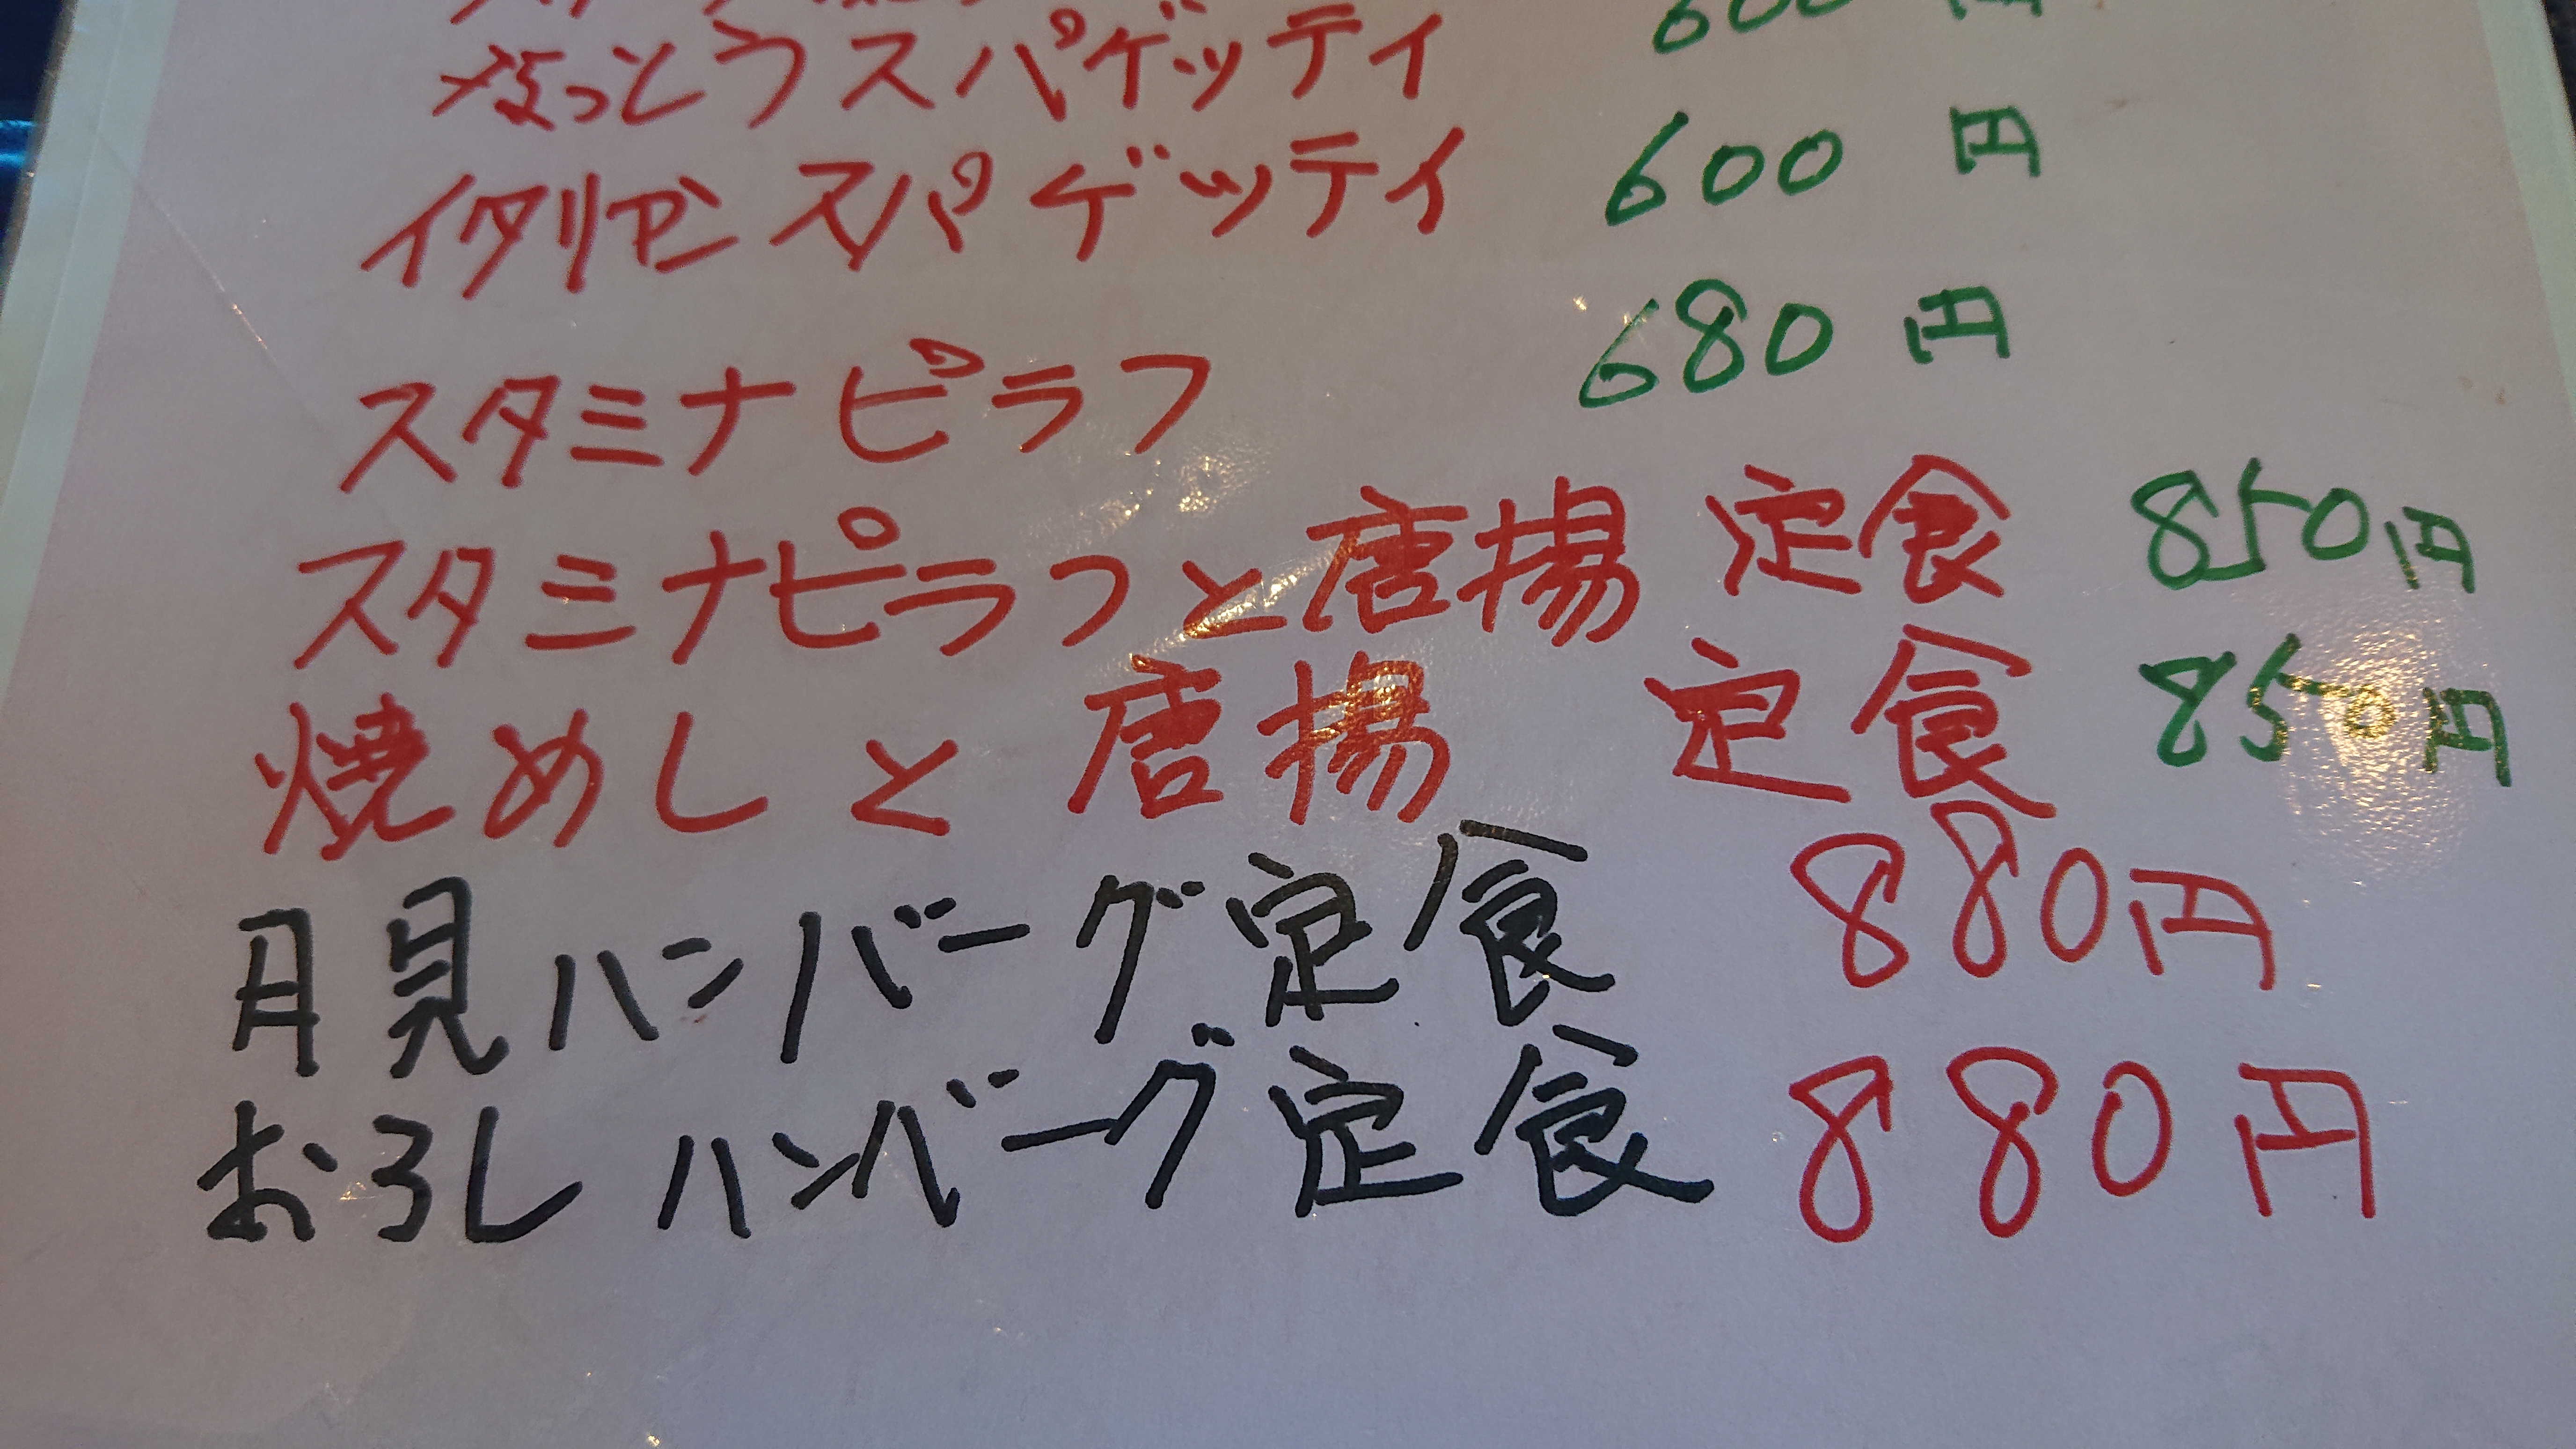 なっとうスパゲッティ 600円
イタリアンスパゲッティ 600円
スタミナピラフ 680円
スタミナピラフと唐揚定食 850円
焼めしと唐揚 定食 850円
月見ハンバーグ定食 880円
おろしハンバーグ定食 880円